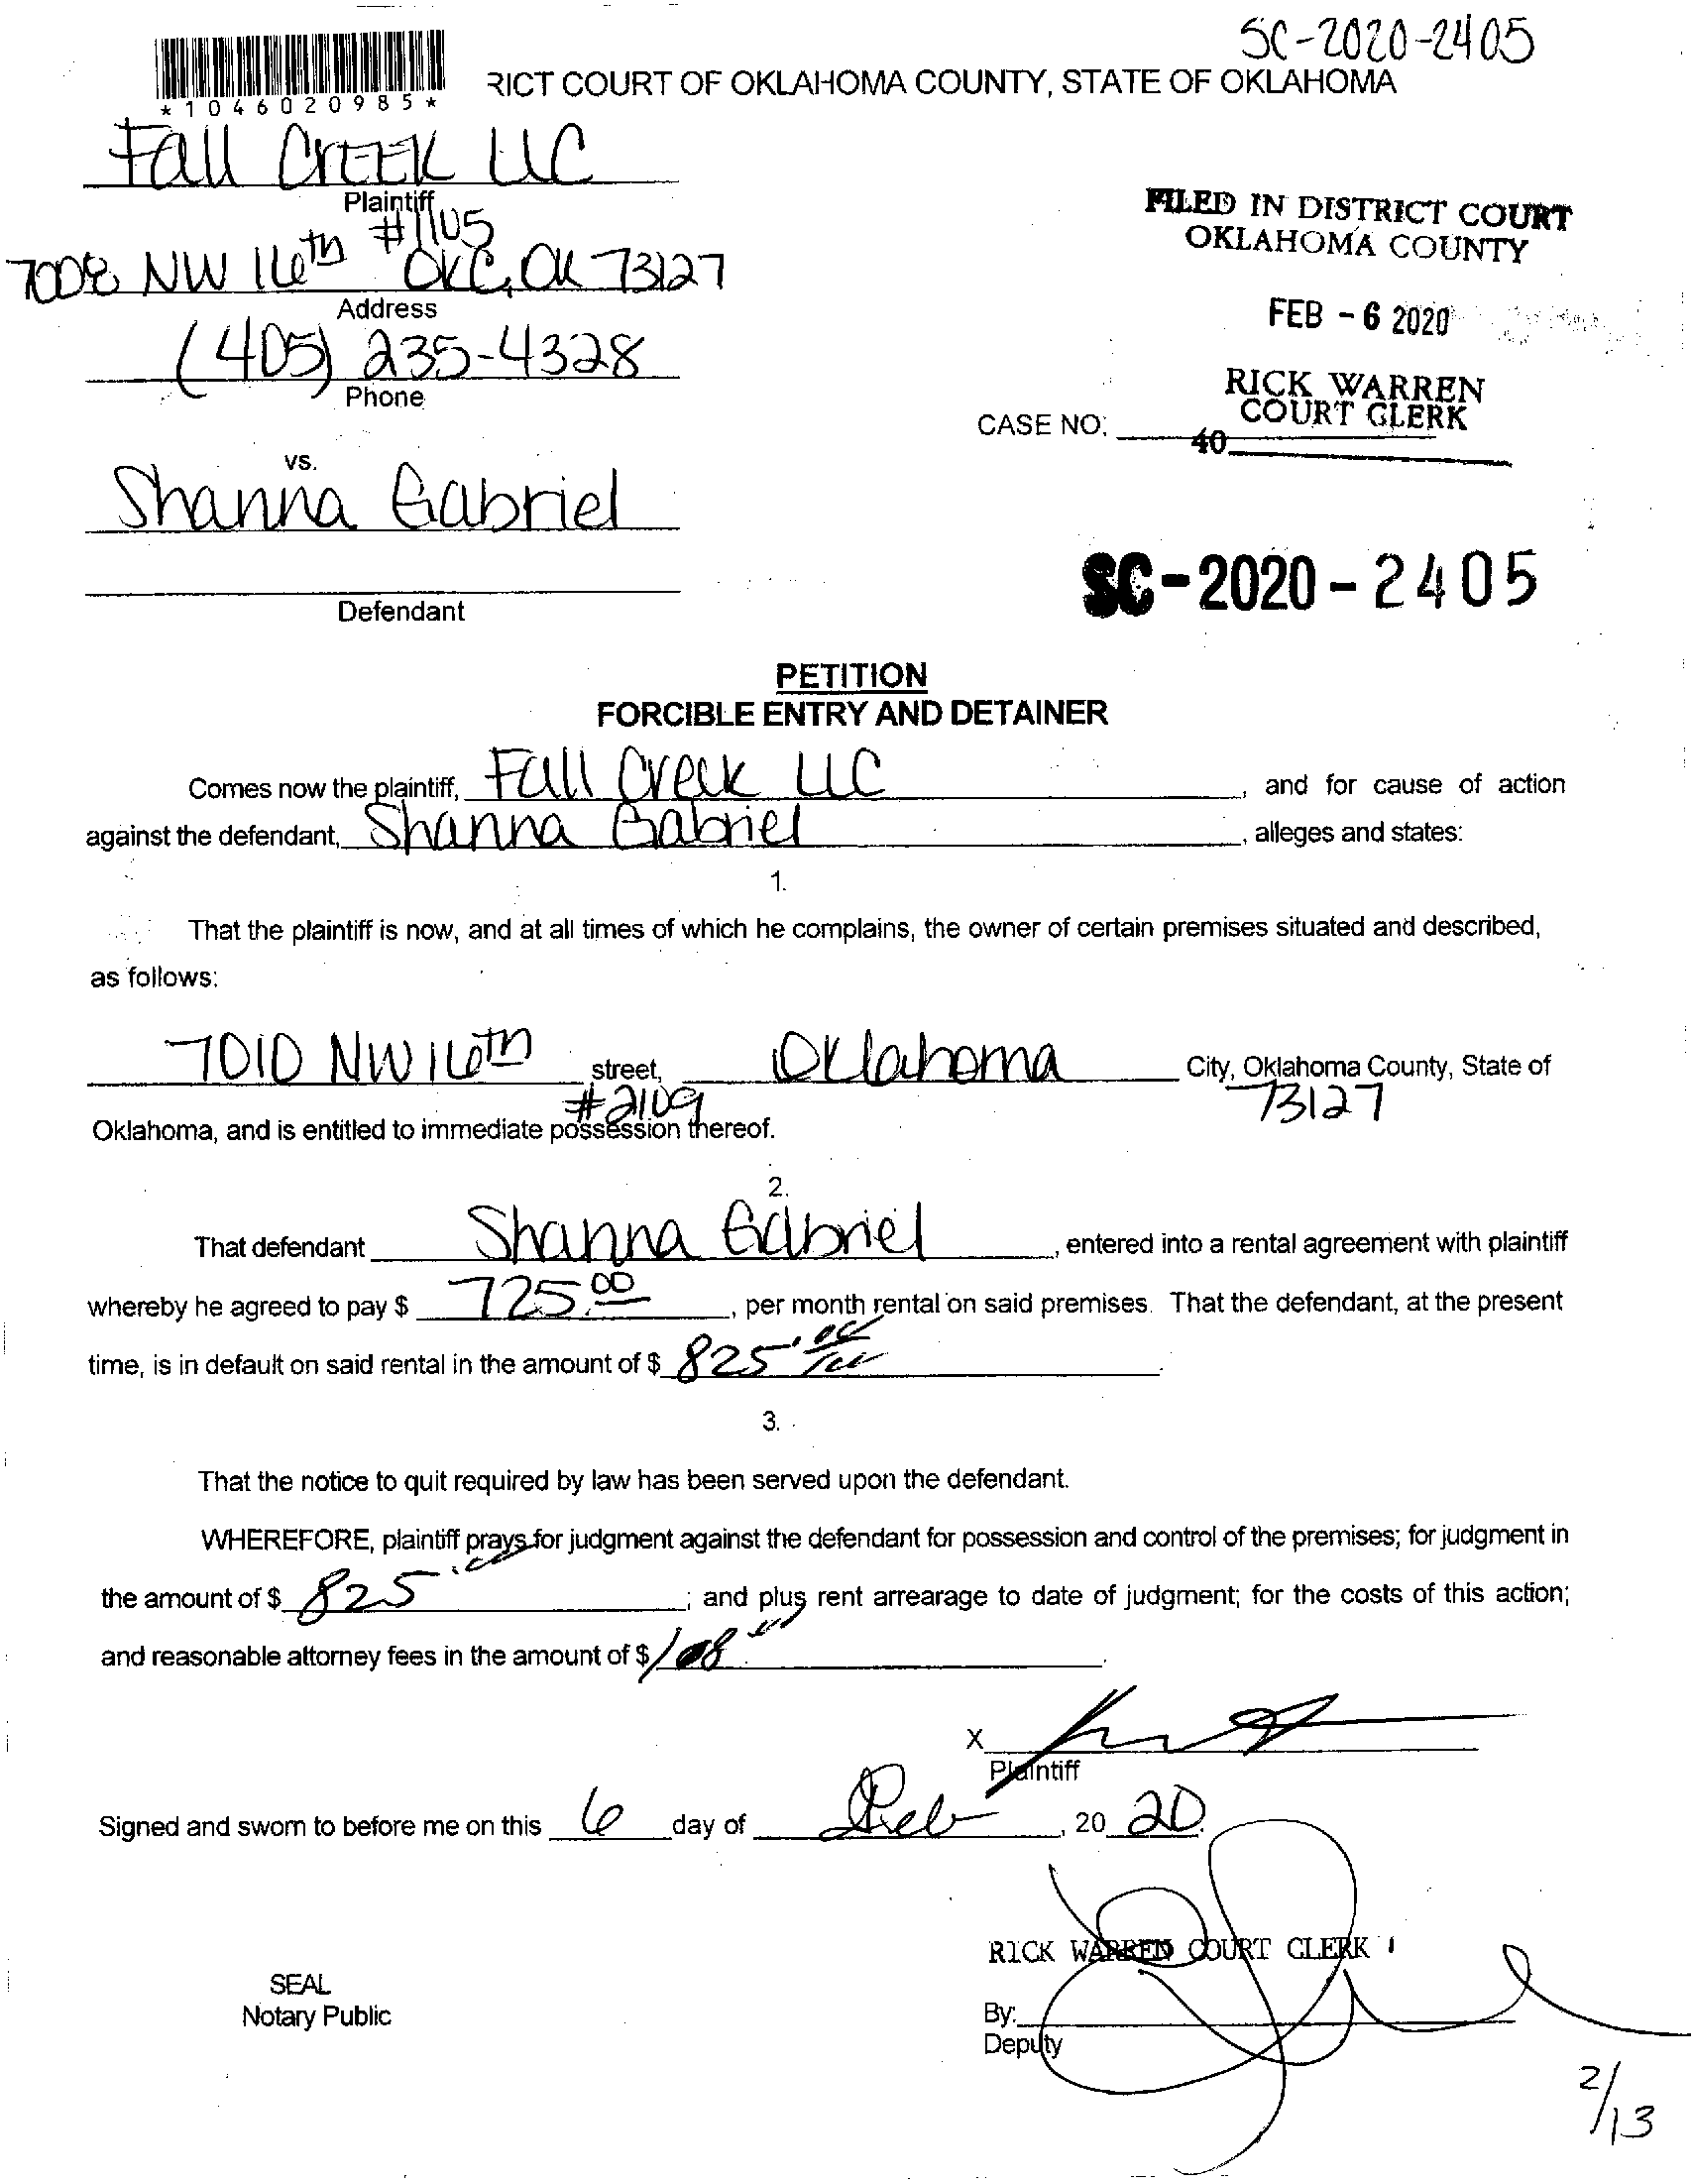 SC-2020-2405
RICT COURT OF OKLAHOMA COUNTY, STATE OF OKLAHOMA
*1046020985*
Fall Creek LLC
Plaintiff
7008 NW 16th #1105 OKC, OK 73127
Address
(405) 235-4328
Phone
FILED IN DISTRICT COURT
OKLAHOMA COUNTY
FEB - 6 2020
RICK WARREN
COURT CLERK
CASE NO:
40
vs.
Shanna Gabriel
Defendant
SC-2020-2405
PETITION
FORCIBLE ENTRY AND DETAINER
Comes now the plaintiff, Fall Creek LLC, and for cause of action
against the defendant, Shanna Gabriel, alleges and states:
1.
That the plaintiff is now, and at all times of which he complains, the owner of certain premises situated and described,
as follows:
7010 NW 16th street, Oklahoma City, Oklahoma County, State of
#2109 73127
Oklahoma, and is entitled to immediate possession thereof.
2.
That defendant Shanna Gabriel, entered into a rental agreement with plaintiff
whereby he agreed to pay $ 725.00, per month rental on said premises. That the defendant, at the present
time, is in default on said rental in the amount of $ 825.
3.
That the notice to quit required by law has been served upon the defendant.
WHEREFORE, plaintiff prays for judgment against the defendant for possession and control of the premises; for judgment in
the amount of $ 825; and plus rent arrearage to date of judgment; for the costs of this action;
and reasonable attorney fees in the amount of $ 108.
X
Plaintiff
Signed and sworn to before me on this 6 day of Feb, 20 20.
RICK WARREN COURT CLERK
SEAL
Notary Public
By:
Deputy
2/13